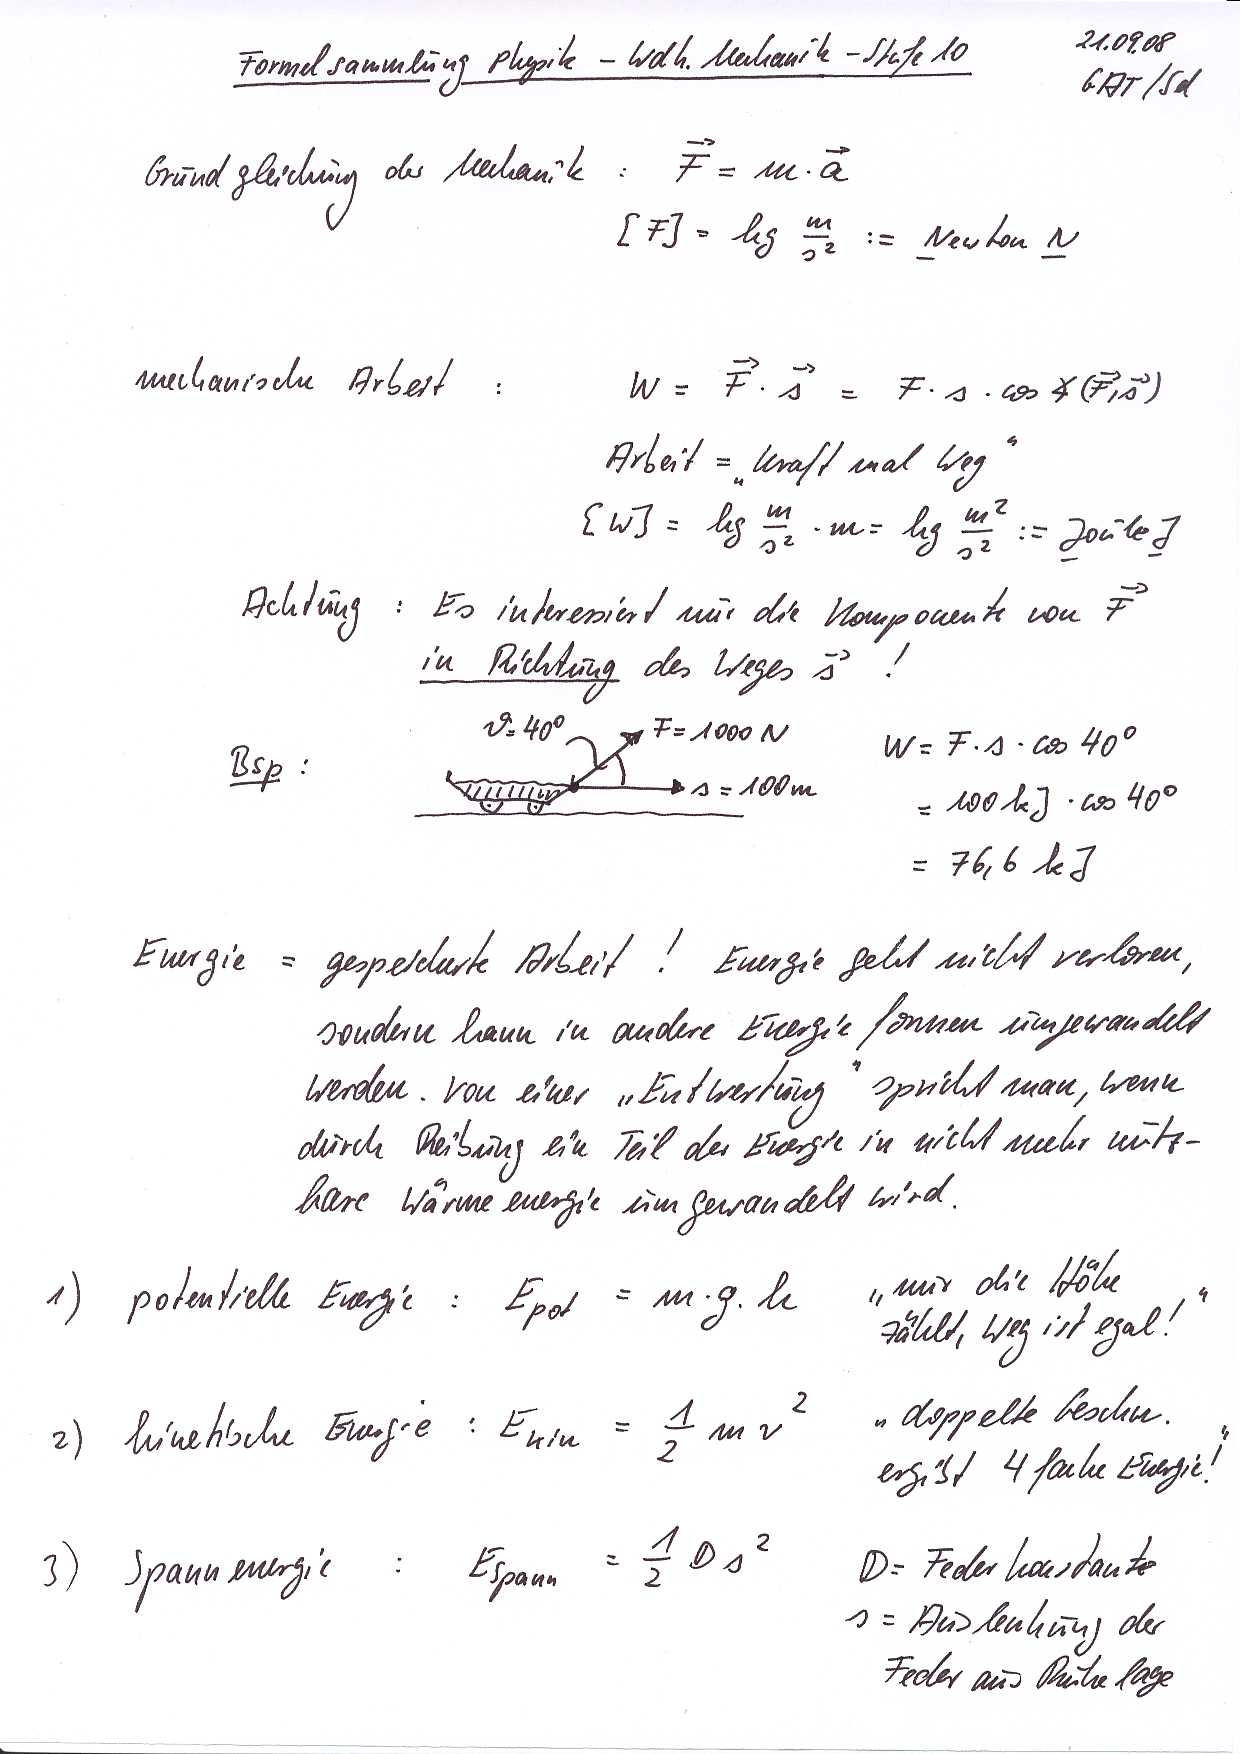 Formelsammlung Physik – Wdh. Mechanik – Stufe 10
21.09.08
GAT/Sd
Grundgleichung der Mechanik : F⃗ = m · a⃗
[F] = kg m/s² := Newton N
mechanische Arbeit : W = F⃗ · s⃗ = F · s · cos ∢(F⃗,s⃗)
Arbeit = „Kraft mal Weg“
[W] = kg m/s² · m = kg m²/s² := Joule J
Achtung : Es interessiert nur die Komponente von F⃗
in Richtung des Weges s⃗ !
Bsp : ϑ = 40° F = 1000 N W = F · s · cos 40°
s = 100 m = 100 kJ · cos 40°
= 76,6 kJ
Energie = gespeicherte Arbeit ! Energie geht nicht verloren,
sondern kann in andere Energieformen umgewandelt
werden. Von einer „Entwertung“ spricht man, wenn
durch Reibung ein Teil der Energie in nicht mehr nutz-
bare Wärmeenergie umgewandelt wird.
1) potentielle Energie : E_pot = m · g · h „nur die Höhe
zählt, Weg ist egal!“
2) kinetische Energie : E_kin = 1/2 m v² „doppelte Geschw.
ergibt 4 fache Energie!“
3) Spannenergie : E_Spann = 1/2 D s² D = Federkonstante
s = Auslenkung der
Feder aus Ruhelage